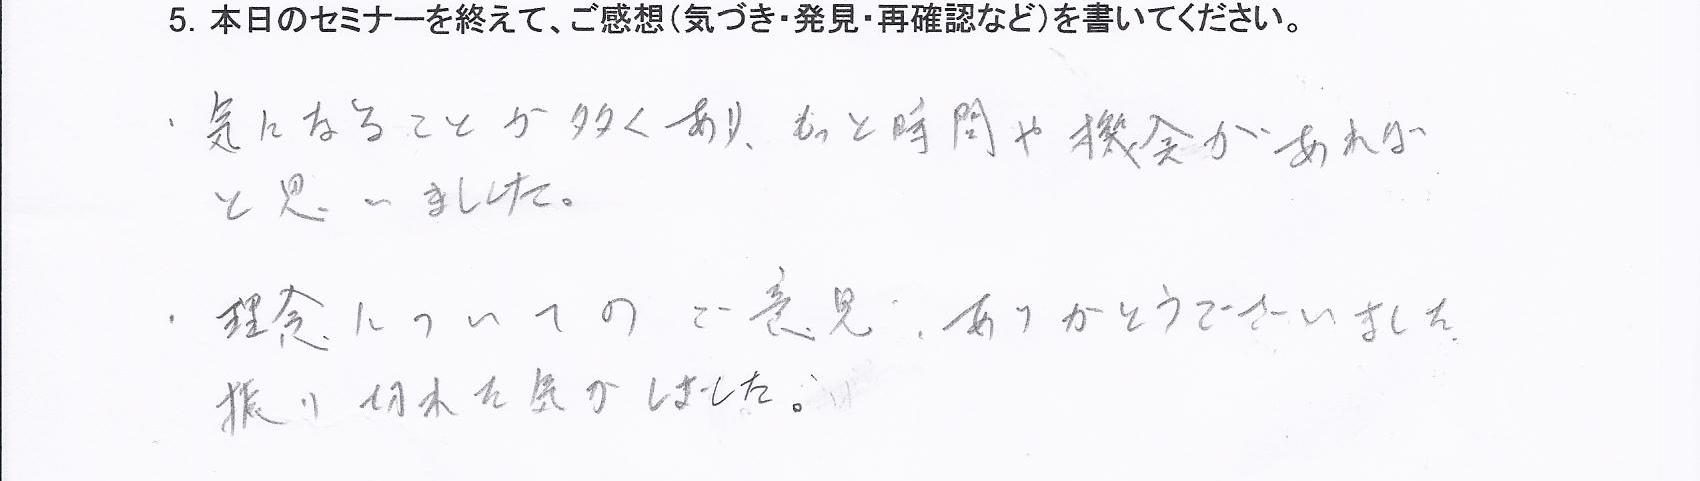 5. 本日のセミナーを終えて、ご感想(気づき・発見・再確認など)を書いてください。
・気になることが多くあり、もっと時間や機会があれば
と思いました。
・理念についてのご意見、ありがとうございました。
振り切れた気がしました。